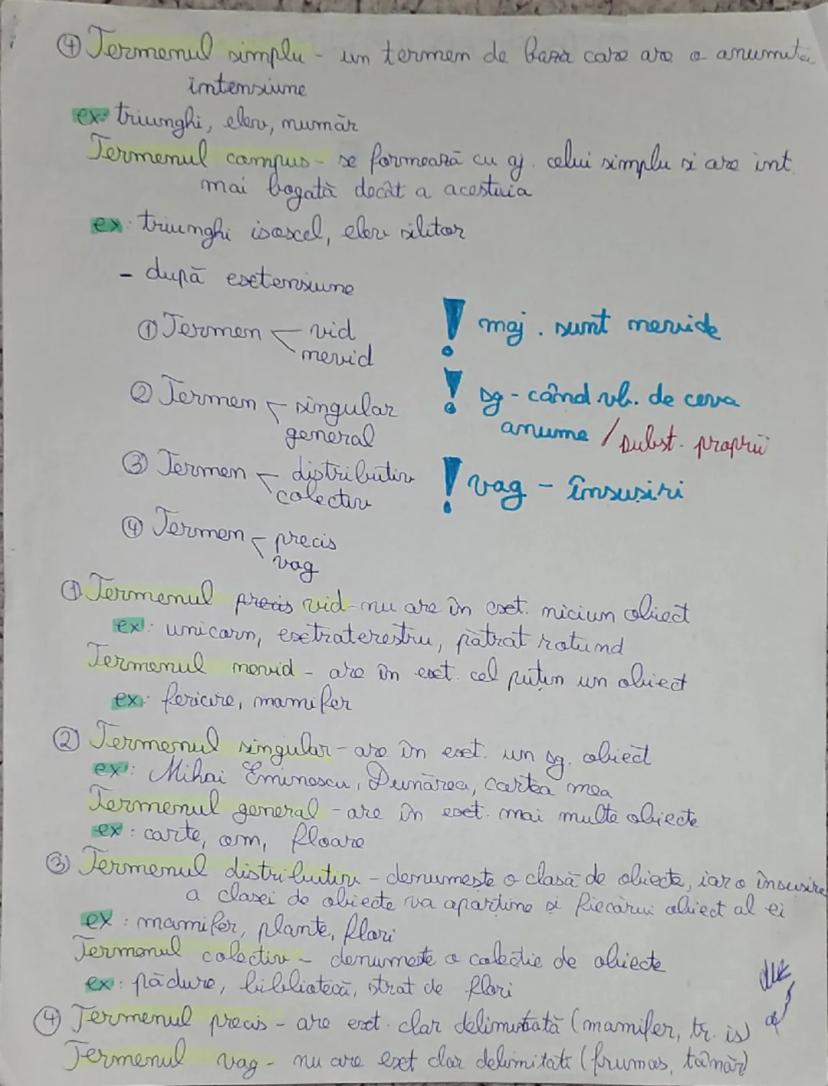 ④ Termenul simplu - un termen de baza care are o anumita
intensiune
ex: triunghi, elev, număr
Termenul compus - se formează cu aj. celui simplu si are int.
mai bogată decât a acestuia
ex: triunghi isoscel, elev silitor
- după extensiune
① Termen < vid
nevid
! maj. sunt nevide
② Termen < singular
general
! sg - când vb. de ceva
anume / subst. proprii
③ Termen < distributiv
colectiv
! vag - însusiri
④ Termen < precis
vag
① Termenul precis vid - nu are în ext. niciun obiect
ex: unicorn, extraterestru, pătrat rotund
Termenul nevid - are în ext. cel puțin un obiect
ex: fericire, mamifer
② Termenul singular - are în ext. un sg. obiect
ex: Mihai Eminescu, Dunărea, cartea mea
Termenul general - are în ext. mai multe obiecte
ex: carte, om, floare
③ Termenul distributiv - denumește o clasă de obiecte, iar o însusire
a clasei de obiecte va aparține și fiecărui obiect al ei
ex: mamifer, plante, flori
Termenul colectiv - denumeste o colecție de obiecte
ex: pădure, bibliotecă, strat de flori
④ Termenul precis - are ext. clar delimitată (mamifer, tr. is)
Termenul vag - nu are ext clar delimitată (frumos, tânăr)